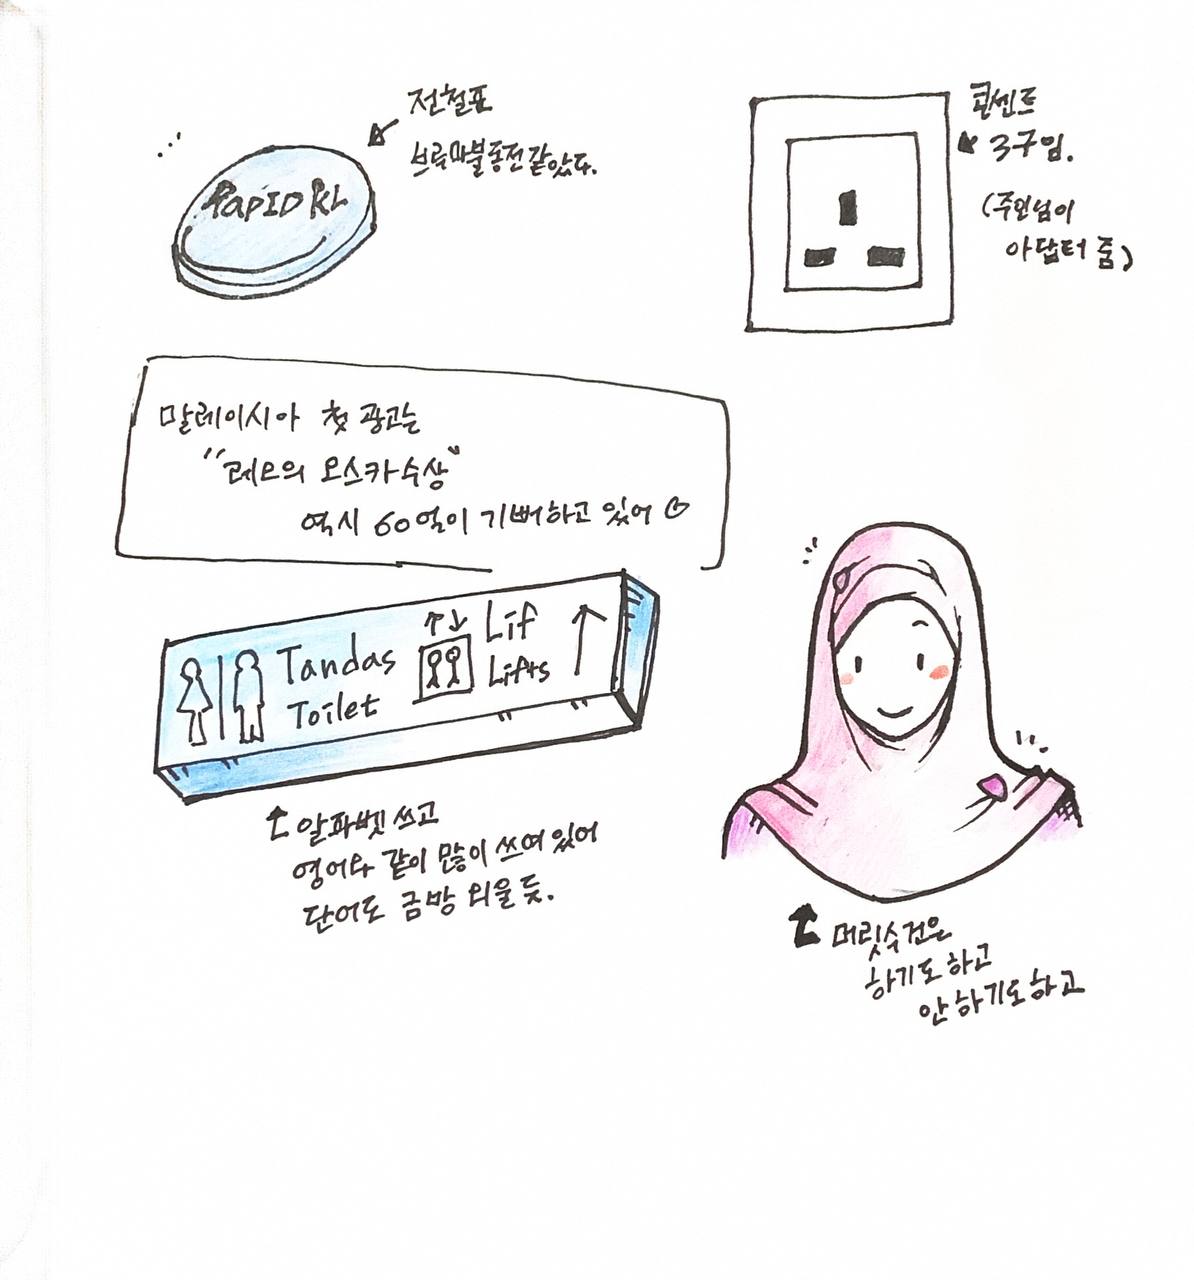 전철표
브루마불동전같았다.
RapID KL
콘센트
3구임.
(주인님이
아답터 줌)
말레이시아 첫 광고는
"레오의 오스카수상"
역시 60억이 기뻐하고 있어
Tandas
Toilet
Lif
Lifts
알파벳 쓰고
영어와 같이 많이 쓰여있어
단어도 금방 외울 듯.
머릿수건은
하기도 하고
안 하기도 하고